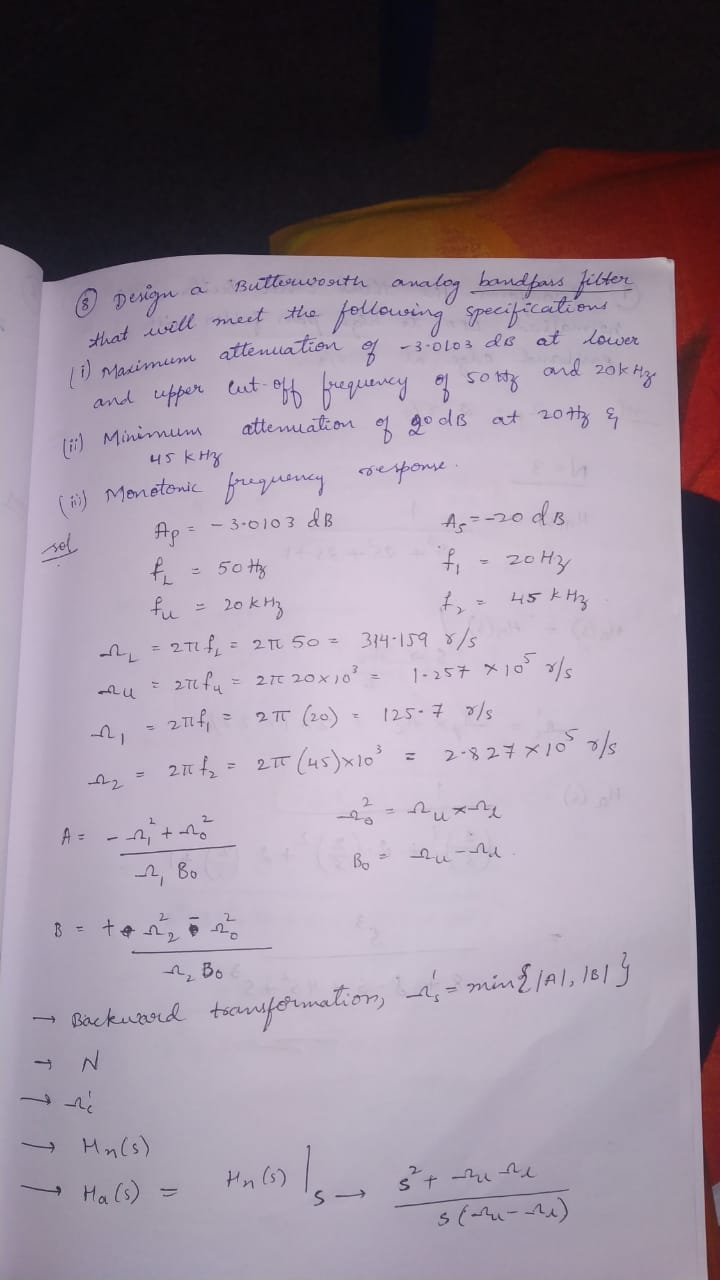 ⑧ Design a Butterworth analog bandpass filter
that will meet the following specifications
(i) Maximum attenuation of -3.0103 dB at lower
and upper cut-off frequency of 50 Hz and 20k Hz.
(ii) Minimum attenuation of 20 dB at 20 Hz &
45 kHz
(iii) Monotonic frequency response.
sol Ap = -3.0103 dB As = -20 dB
fL = 50 Hz f1 = 20 Hz
fu = 20 kHz f2 = 45 kHz
ΩL = 2πfL = 2π 50 = 314.159 r/s
Ωu = 2πfu = 2π 20×10³ = 1.257 × 10⁵ r/s
Ω1 = 2πf1 = 2π (20) = 125.7 r/s
Ω2 = 2πf2 = 2π (45)×10³ = 2.827 × 10⁵ r/s
A = - Ω1² + Ω0² / Ω1 B0 Ω0² = Ωu × Ωl
B0 = Ωu - Ωl
B = + Ω2² - Ω0² / Ω2 B0
→ Backward transformation, Ω's = min{|A|, |B|}
→ N
→ Ω'c
→ Hn(s)
→ Ha(s) = Hn(s) | s → s² + Ωu Ωl / s(Ωu - Ωl)